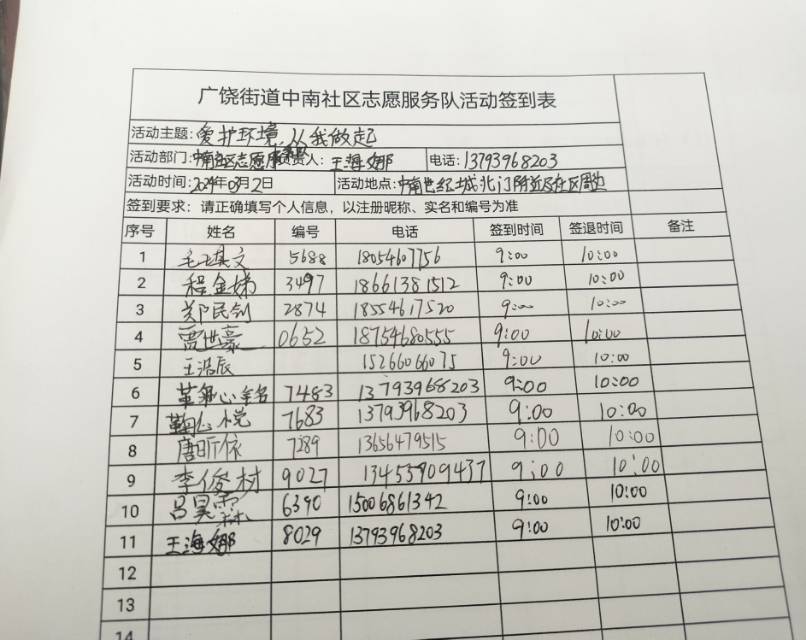 广饶街道中南社区志愿服务队活动签到表
活动主题: 爱护环境,从我做起
活动部门: 中南社区志愿服务队 负责人: 王海娜 电话: 13793968203
活动时间: 2024年03月2日 活动地点: 中南世纪城北门附近及社区周边
签到要求: 请正确填写个人信息，以注册昵称、实名和编号为准
序号 姓名 编号 电话 签到时间 签退时间 备注
1 毛琪文 5688 18054607756 9:00 10:00
2 程金娣 3497 18661381512 9:00 10:00
3 郑民剑 2874 18554617520 9:00 10:00
4 贾世豪 0652 18754680555 9:00 10:00
5 王浩辰 15266066075 9:00 10:00
6 7483 13793968203 9:00 10:00
7 鞠心悦 7683 13793968203 9:00 10:00
8 唐昕依 7289 13656479515 9:00 10:00
9 李俊材 9027 13455709437 9:00 10:00
10 吕昊霖 6390 15006861342 9:00 10:00
11 王海娜 8029 13793968203 9:00 10:00
12
13
14